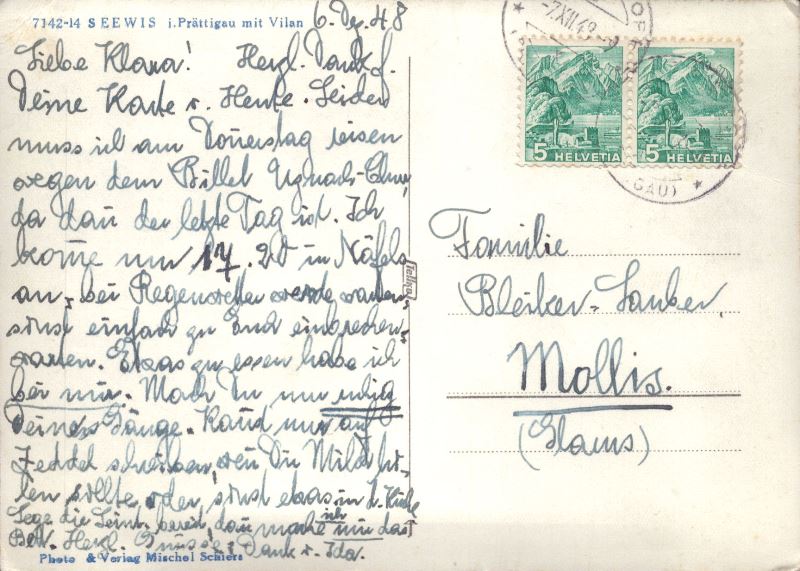 7142-14 SEEWIS i. Prättigau mit Vilan
6. Dez. 48
Liebe Klara! Herzl. Dank f.
Deine Karte v. Heute. Leider
muss ich am Donerstag reisen
wegen dem Billet Uznach-Chur
da dan der letzte Tag ist. Ich
kome um 17.20 in Näfels
an, bei Regenwetter werde warten
sonst einfach zu Euch
warten. Etwas zu essen habe ich
bei mir. Mach Du nur ruhig
Deine Gänge. Kanst nur auf
Zeddel schreiben, wen Du Milch ho-
len sollte oder sonst etwas in d. Küche
Lege die bereit, dan mache ich mir das
Bett. Herzl. Grüsse & Dank v. Ida.
Photo & Verlag Mischol Schiers
Tellko
-7.XII.48-
GAU) *
5 HELVETIA
5 HELVETIA
Familie
Bleiker-Sauber,
Mollis.
(Glarus)